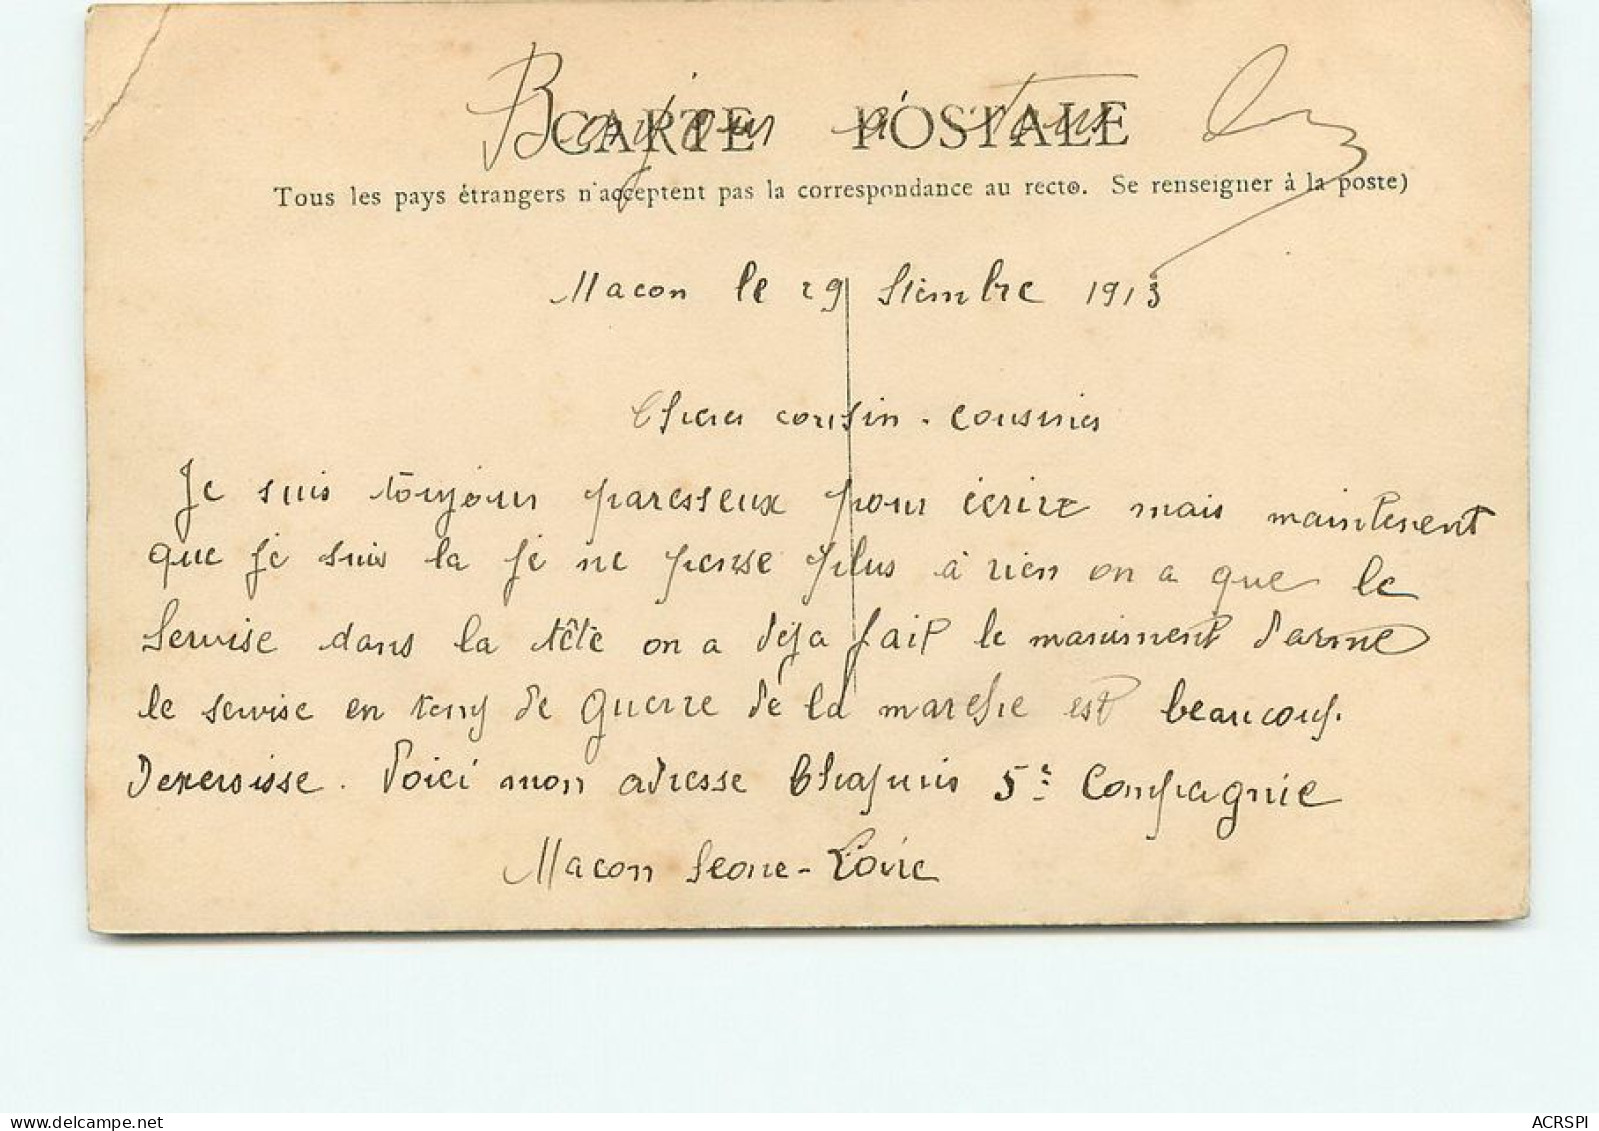 Bonjour a tous
CARTE POSTALE
Tous les pays étrangers n'acceptent pas la correspondance au recto. Se renseigner à la poste)
Macon le 29 1913
Cher cousin - cousines
Je suis toujour paresseux pour écrire mais maintenent
que je suis la je ne pense plus à rien on a que le
servise dans la tête on a déja fait le maniment d'arme
le servise en temp de guerre de la marche est beaucoup
Dexersisse. Voici mon adresse Chapuis 5e Compagnie
Macon Seone-Loire
ACRSPI